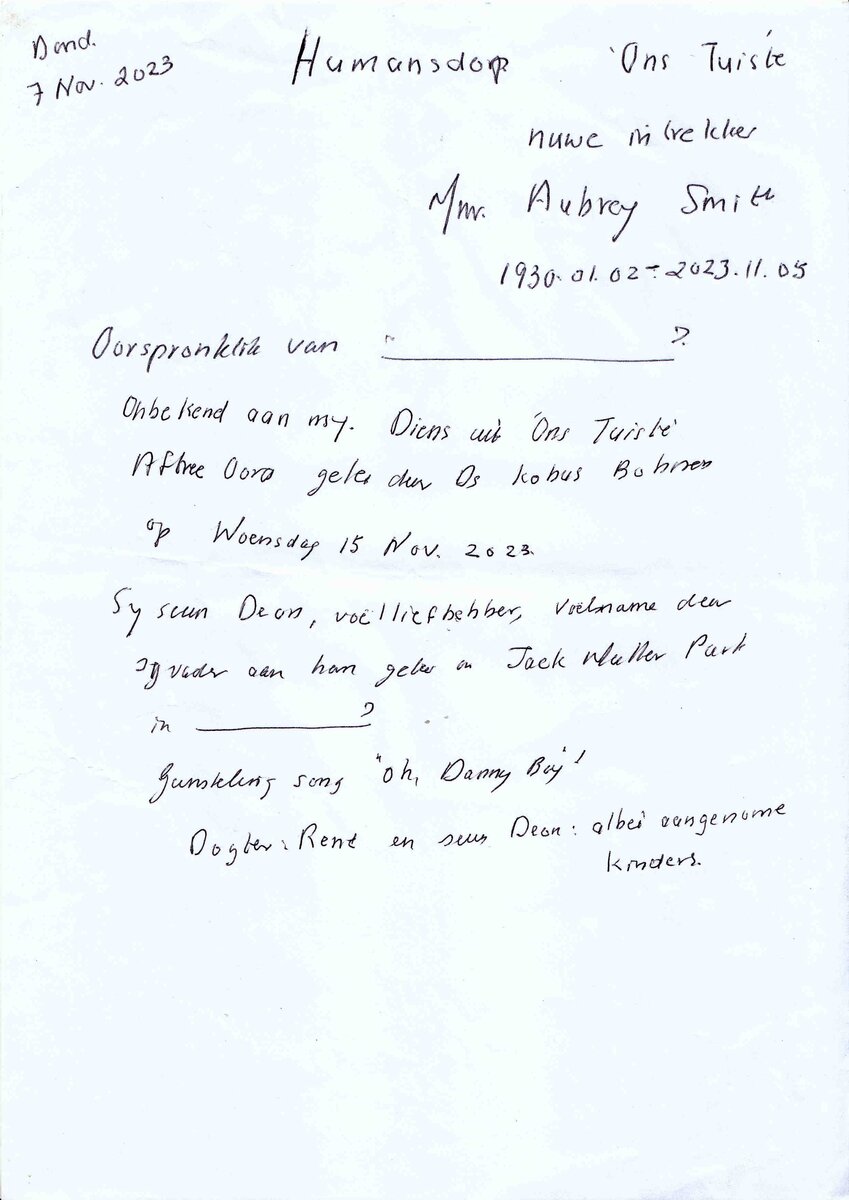 Dond.
7 Nov. 2023
Humansdorp 'Ons Tuiste
nuwe intrekker
Mnr. Aubrey Smith
1930.01.02 - 2023.11.05
Oorspronklik van ?
Onbekend aan my. Diens uit 'Ons Tuiste'
Aftree Oord gelei deur Ds Kobus
op Woensdag 15 Nov. 2023.
Sy seun Deon, voëlliefhebber, voëlname deur
sy vader aan hom geleer in Jack Muller Park
in ?
Gunsteling song "Oh, Danny Boy"!
Dogter: René en seun Deon: albei aangenome
kinders.